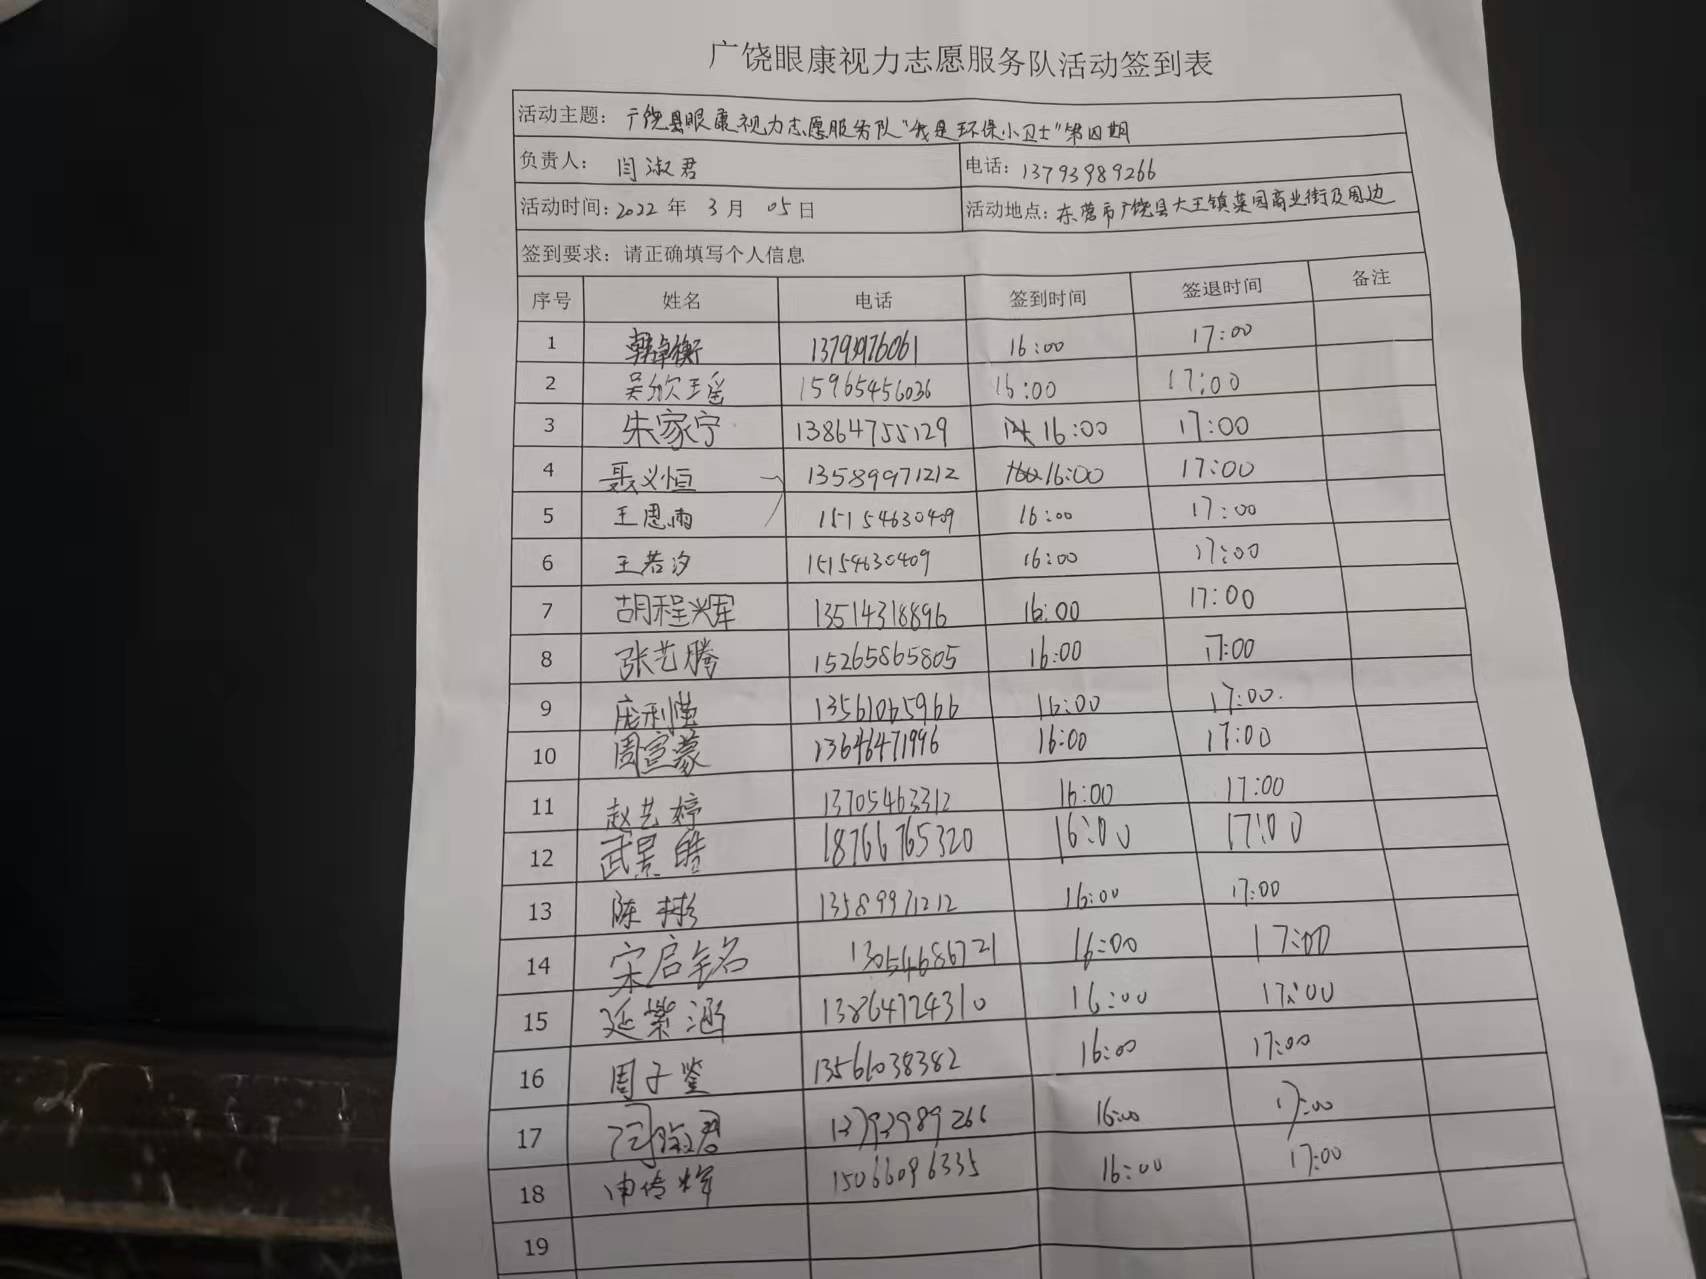 广饶眼康视力志愿服务队活动签到表
活动主题：广饶县眼康视力志愿服务队“我是环保小卫士”第四期
负责人：闫淑君 电话：13793989266
活动时间：2022年 3月 05日 活动地点：东营市广饶县大王镇菜园商业街及周边
签到要求：请正确填写个人信息
序号 姓名 电话 签到时间 签退时间 备注
1 韩卓衡 16:00 17:00
2 吴欣瑶 15965456036 16:00 17:00
3 朱家宁 13864755129 16:00 17:00
4 聂义恒 13589971212 16:00 17:00
5 王思雨 15154630409 16:00 17:00
6 王若汐 15154630409 16:00 17:00
7 胡程辉 13514318896 16:00 17:00
8 张艺腾 15265865805 16:00 17:00
9 庞利莹 13561065966 16:00 17:00.
10 周宣蒙 13646471996 16:00 17:00
11 赵艺婷 13705463312 16:00 17:00
12 武景皓 18766765320 16:00 17:00
13 陈彬 13589971212 16:00 17:00
14 宋启铭 13054686721 16:00 17:00
15 延紫涵 13864724310 16:00 17:00
16 周子鉴 13566038382 16:00 17:00
17 闫淑君 13793989266 16:00 17:00
18 申传辉 15066096335 16:00 17:00
19